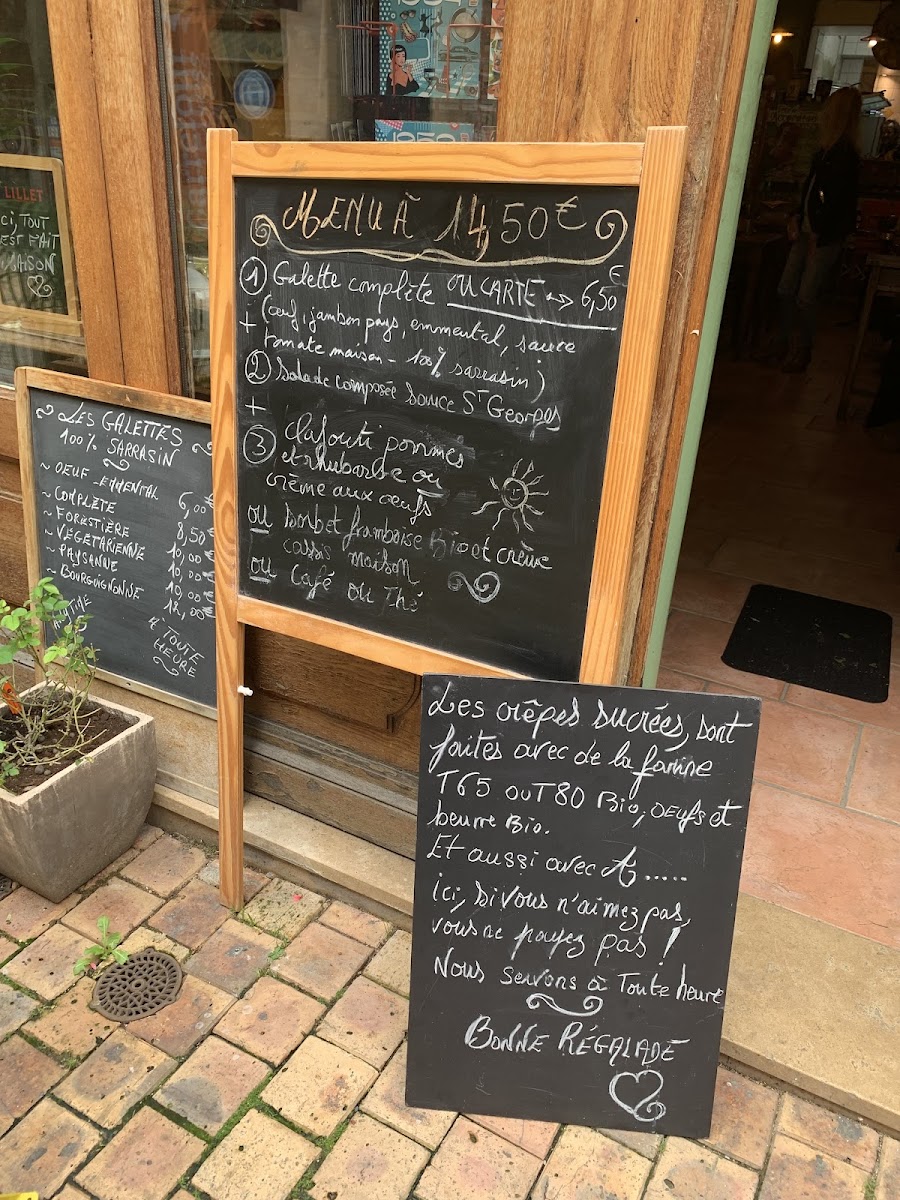 LILLET
ICI, TOUT
EST FAIT
MAISON
LES GALETTES
100% SARRASIN
~ OEUF - EMMENTAL 6,00€
~ COMPLÈTE 8,50€
~ FORESTIÈRE 10,00€
~ VÉGÉTARIENNE 10,00€
~ PAYSANNE 10,00€
~ BOURGUIGNONNE 12,00€
À TOUTE
HEURE
MENU À 14,50€
1 Galette complète OU CARTE ↔ 6,50€
+ (œuf, jambon pays, emmental, sauce
tomate maison - 100% sarrasin)
2 Salade composée Sauce St Georges
+
3 Clafouti pommes
et rhubarbe ou
crème aux œufs
ou Sorbet framboise Bio et crème
cassis maison
ou Café ou Thé
Les crêpes sucrées, sont
faites avec de la farine
T65 ou T80 Bio, oeufs et
beurre Bio.
Et aussi avec A.....
ici, si vous n'aimez pas,
vous ne payez pas !
Nous servons à Toute heure
BONNE RÉGALADE